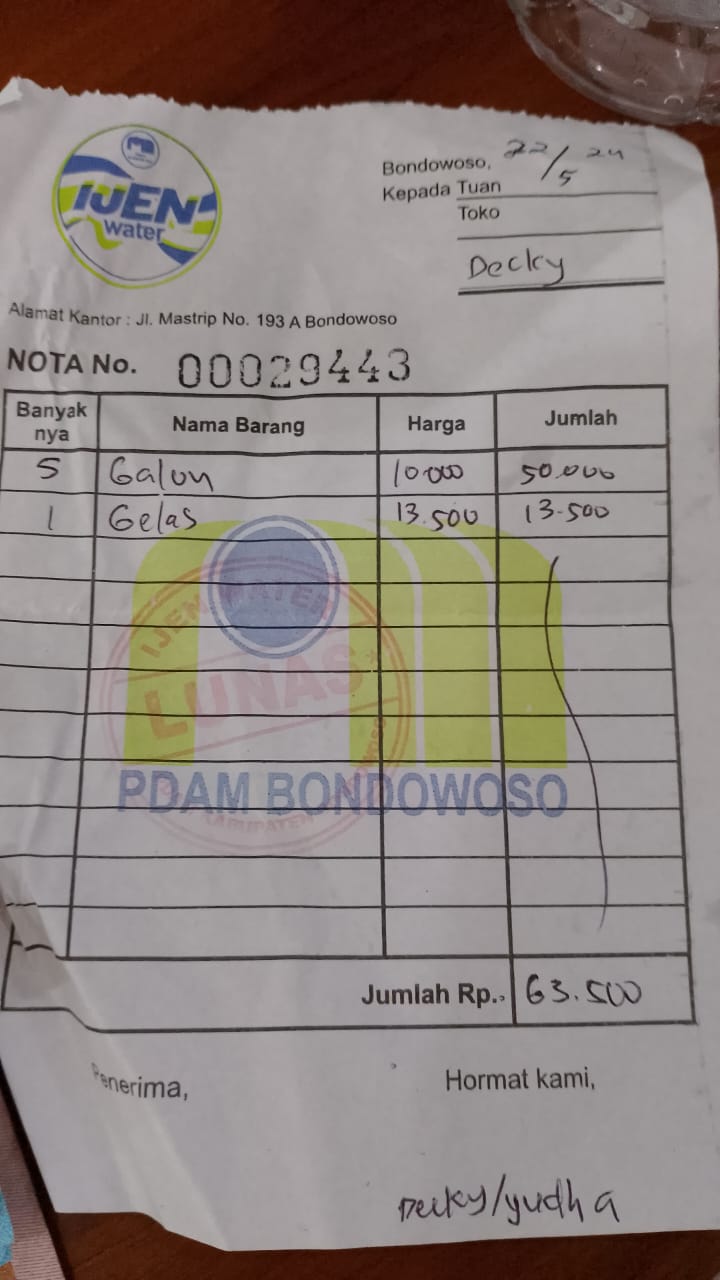 IJEN
water
Bondowoso, 22/5 24
Kepada Tuan
Toko
Decky
Alamat Kantor : Jl. Mastrip No. 193 A Bondowoso
NOTA No. 00029443
Banyak nya Nama Barang Harga Jumlah
5 Galon 10.000 50.000
1 Gelas 13.500 13.500
IJEN WATER
LUNAS
PDAM BONDOWOSO
KABUPATEN
Jumlah Rp.. 63.500
Penerima, Hormat kami,
Decky/yudha